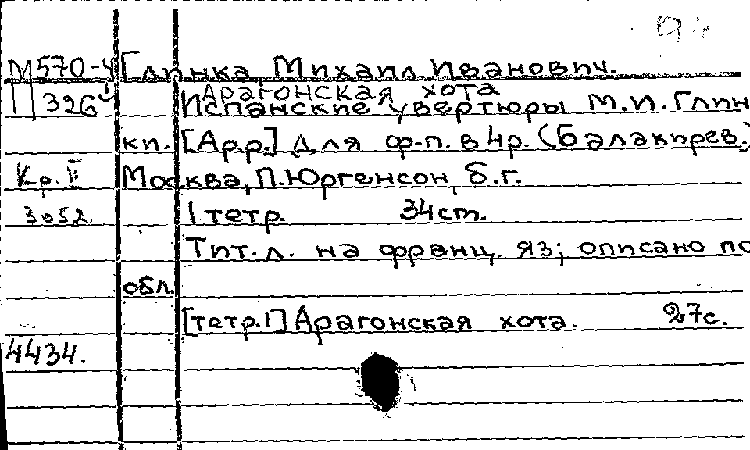 М570-4 Глинка, Михаил Иванович.
Арагонская хота
326 Испанские увертюры М.И.Глин
ки. [Арр.] для ф-п. в 4р. (Балакирев.)
Кр. II Москва, П.Юргенсон, б.г.
3052 1 тетр. 34 ст.
Тит.л. на франц. яз; описано по
обл.
[тетр.1] Арагонская хота. 27с.
4434.